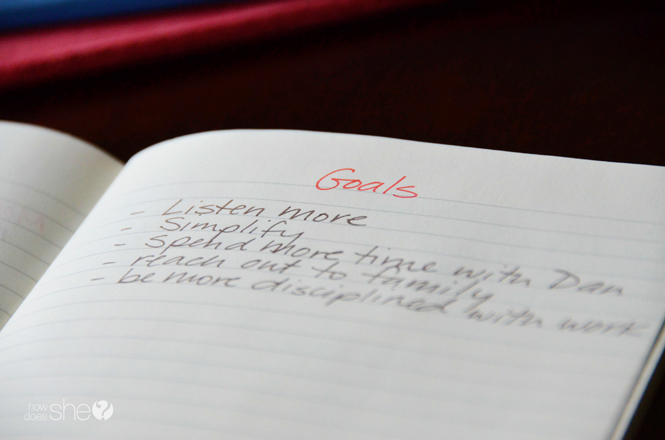 Goals
- Listen more
- Simplify
- Spend more time with Dan
- reach out to family
- be more disciplined with work
how
does she?